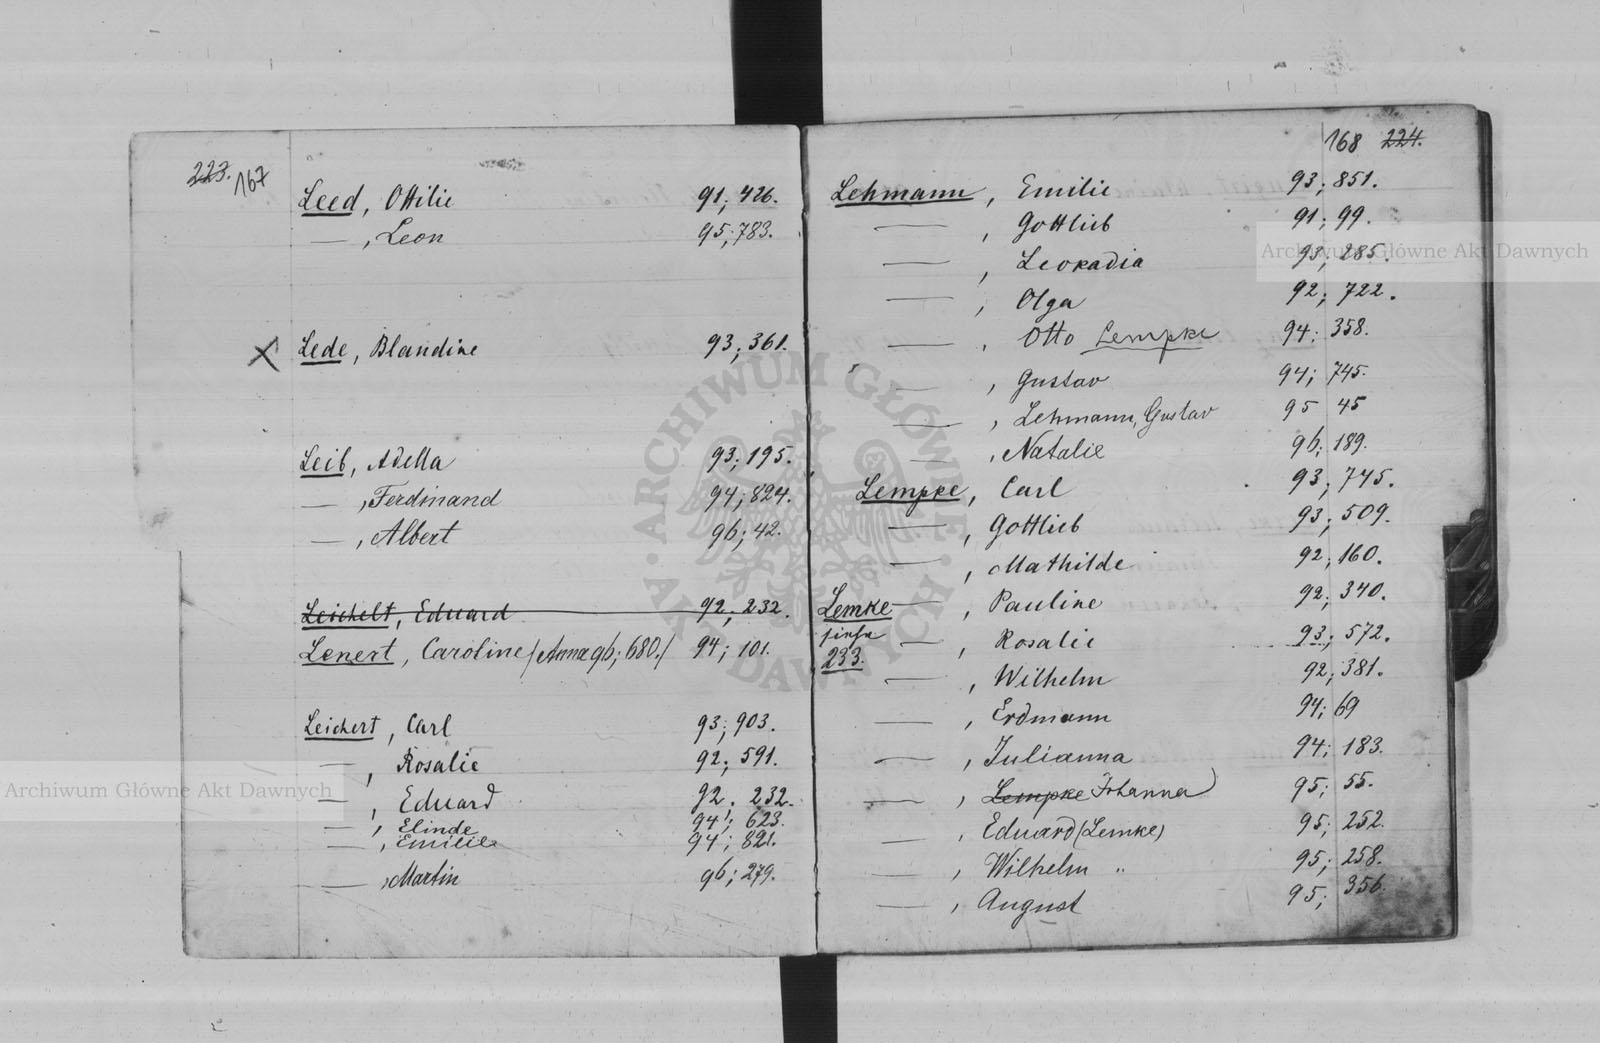 223. 167
Leed, Ottilie 91; 426.
—, Leon 95; 783.
X Lede, Blandine 93; 361.
Leib, Adella 93; 195.
—, Ferdinand 94; 824.
—, Albert 96; 42.
Leichelt, Eduard 92; 232.
Lenert, Caroline /Anna 96; 680./ 94; 101.
Leichert, Carl 93; 903.
—, Rosalie 92; 591.
—, Eduard 92; 232.
—, Elinde 94; 623.
—, Emilie 94; 821.
—, Martin 96; 279.
168 224.
Lehmann, Emilie 93; 851.
—, Gottlieb 91; 99.
—, Leokadia 93; 285.
—, Olga 92; 722.
—, Otto Lempke 94; 358.
—, Gustav 94; 745.
—, Lehmann, Gustav 95 45
—, Natalie 96; 189.
Lempke, Carl 93; 745.
—, Gottlieb 93; 509.
—, Mathilde 92; 160.
Lemke —, Pauline 92; 340.
siehe —, Rosalie 93; 572.
233. —, Wilhelm 92; 381.
—, Erdmann 94; 69
—, Julianna 94; 183.
—, Lempke Johanna 95; 55.
—, Eduard (Lemke) 95; 252.
—, Wilhelm " 95; 258.
—, August 95; 356.
Archiwum Główne Akt Dawnych
Archiwum Główne Akt Dawnych
ARCHIWUM GŁÓWNE AKT DAWNYCH